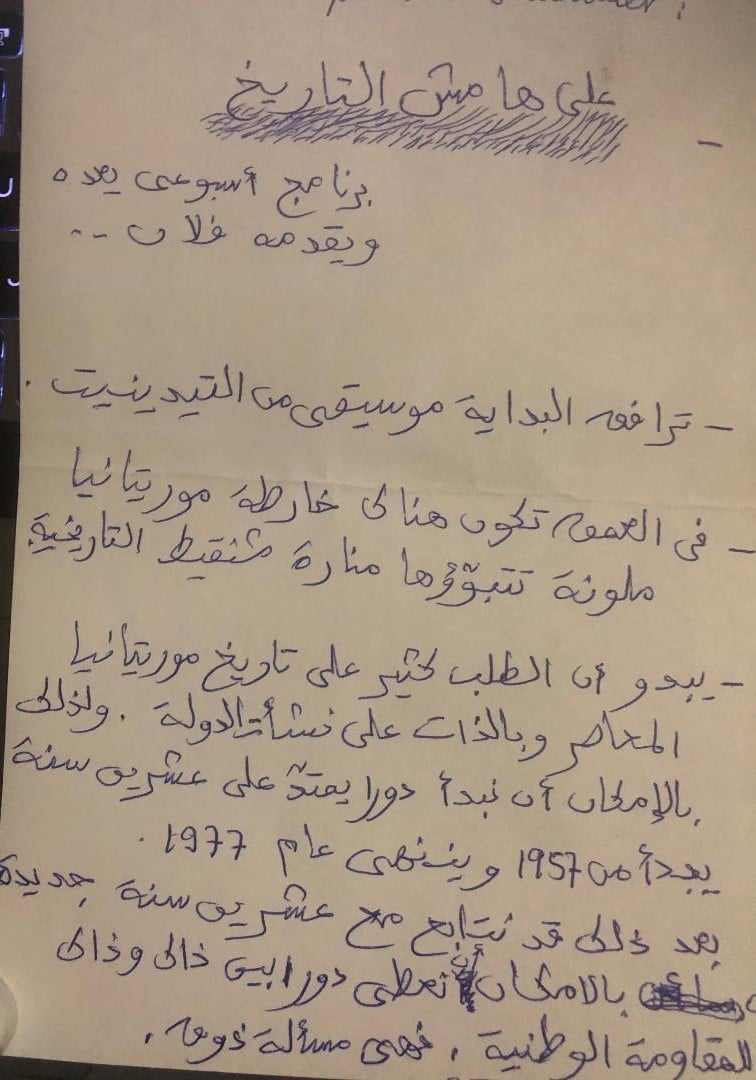 على هامش التاريخ
برنامج أسبوعي يعده
ويقدمه فلان ..
- ترافق البداية موسيقى من التيدينيت .
- في العمق تكون هنالك خارطة موريتانيا
ملونة تتبوّؤها منارة شنقيط التاريخية
- يبدو أن الطلب كثير على تاريخ موريتانيا
المعاصر وبالذات على نشأت الدولة . ولذلك
بالإمكان أن نبدأ دورا يمتدّ على عشرين سنة
يبدأ من 1957 وينتهي عام 1977 .
بعد ذلك قد نتابع مع عشرين سنة جديدة
بالامكان أن نعطى دورا بين ذلك وذاك
للمقاومة الوطنية . فهي مسألة ذوق .